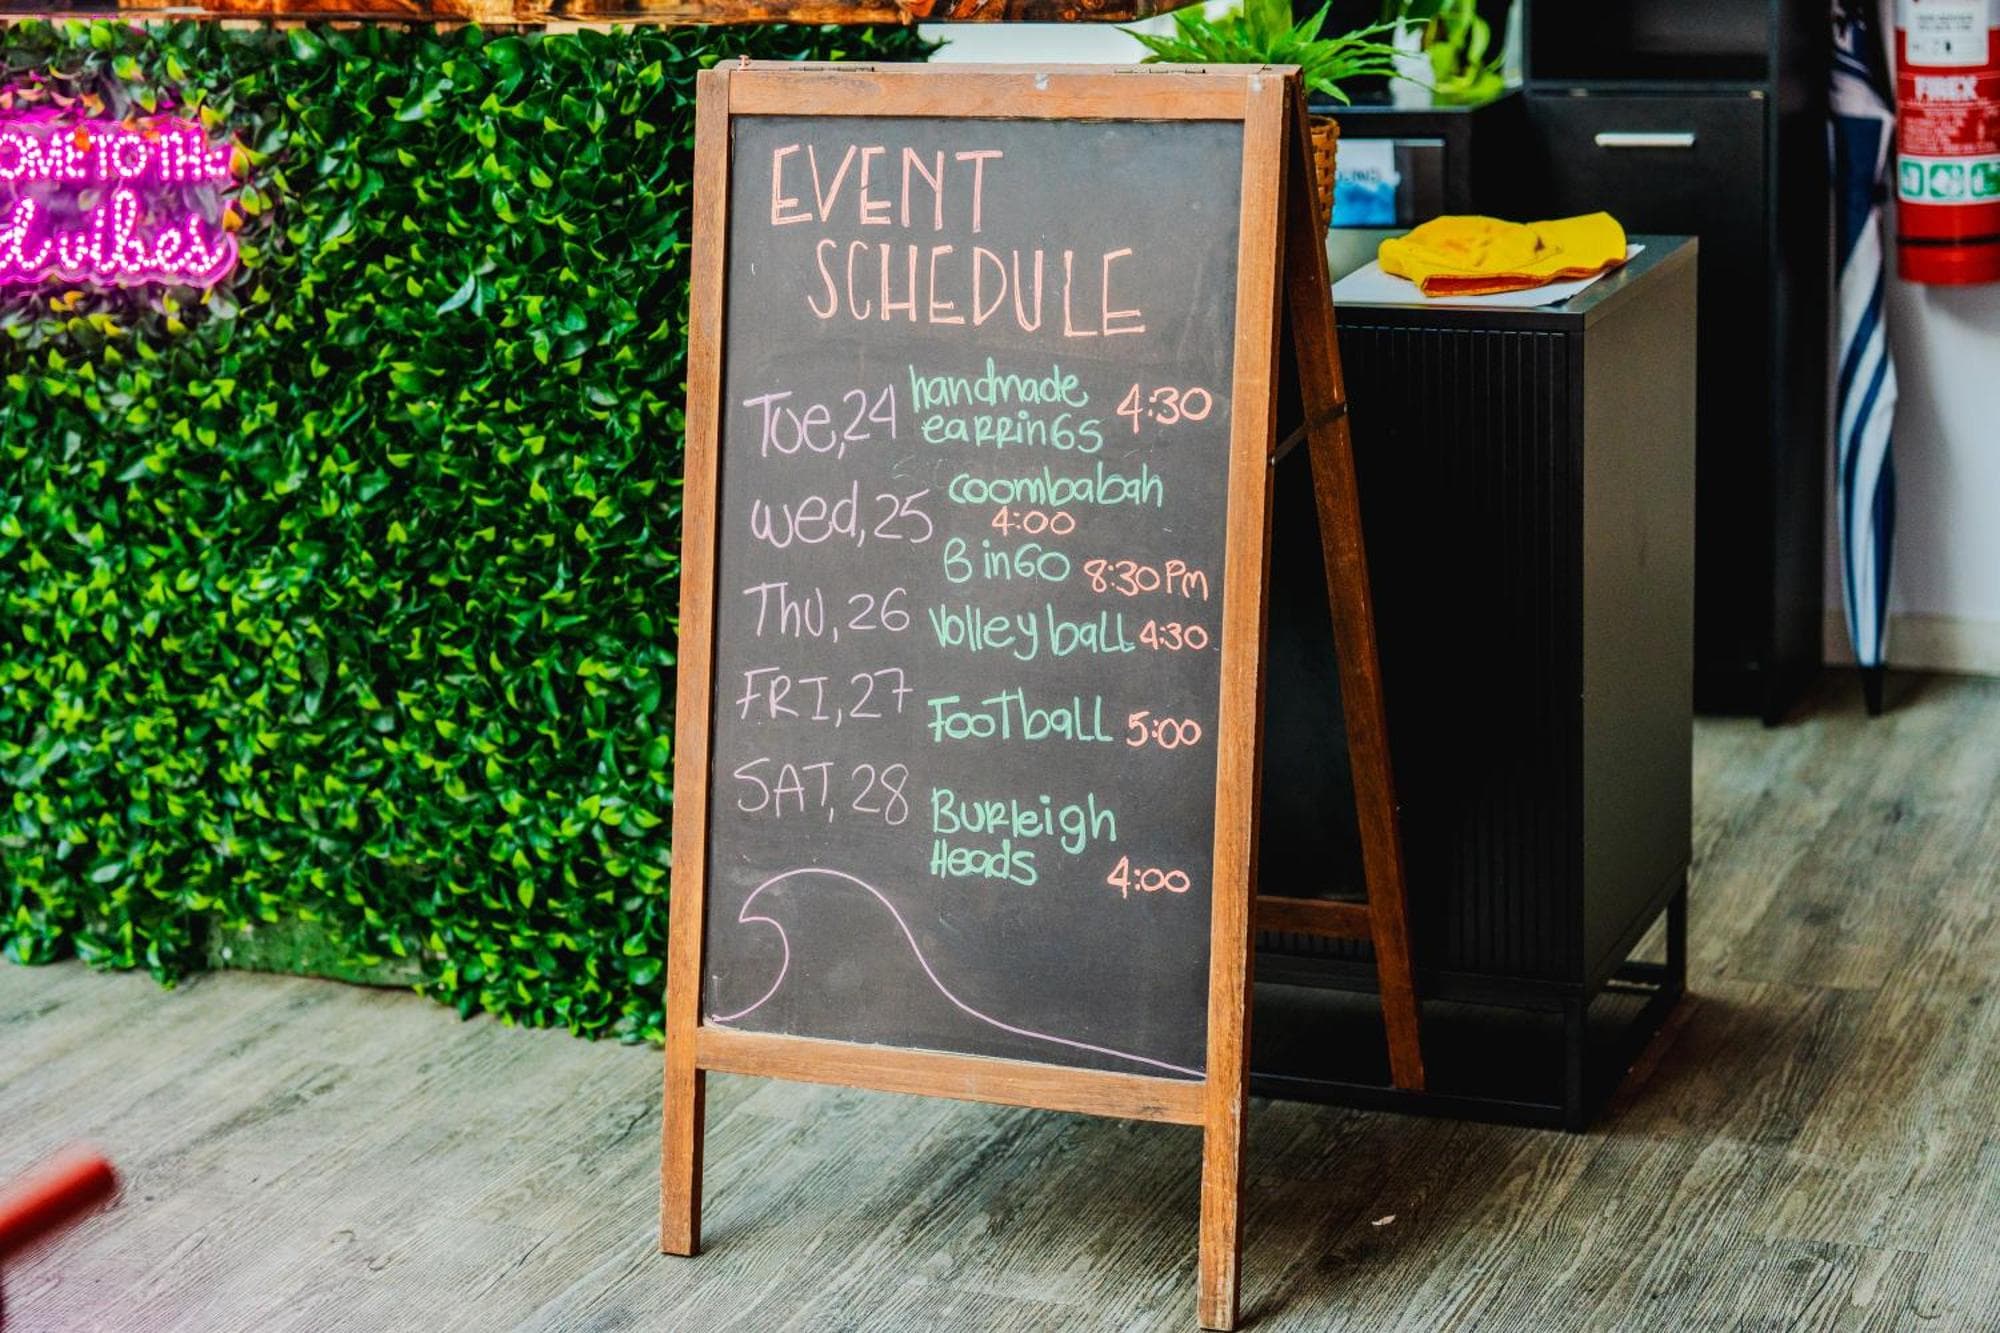 OME TO THE
d vibes
EVENT
SCHEDULE
Tue,24 handmade earrings 4:30
Wed,25 coombabah 4:00
Bingo 8:30 Pm
Thu,26 Volleyball 4:30
FRI,27 FooTball 5:00
SAT,28 Burleigh Heads 4:00
FIREX